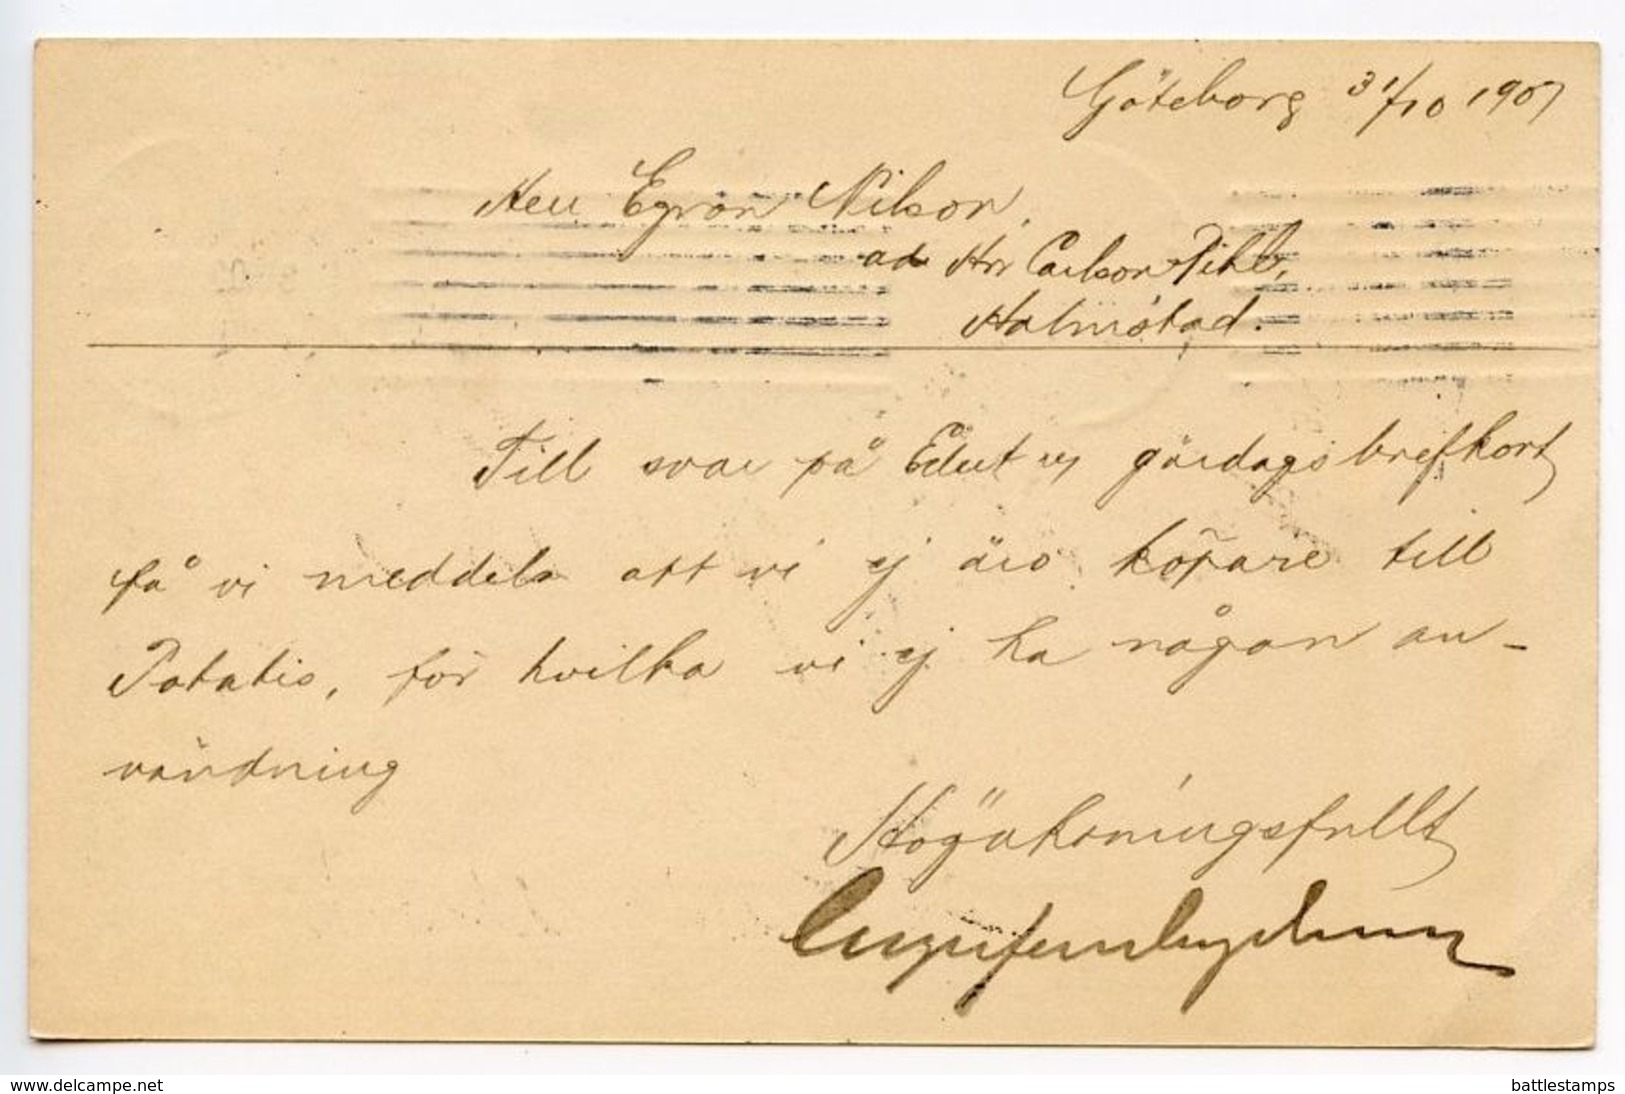 Göteborg 31/10 1907
Herr Egron Nilson,
ad Hrr Carlson Pihl,
Halmstad.
Till svar på Edert gårdags brefkort
få vi meddela att vi ej äro köpare till
Potatis, för hvilka vi ej ha någon an-
vändning
Högaktningsfullt
www.delcampe.net
battlestamps